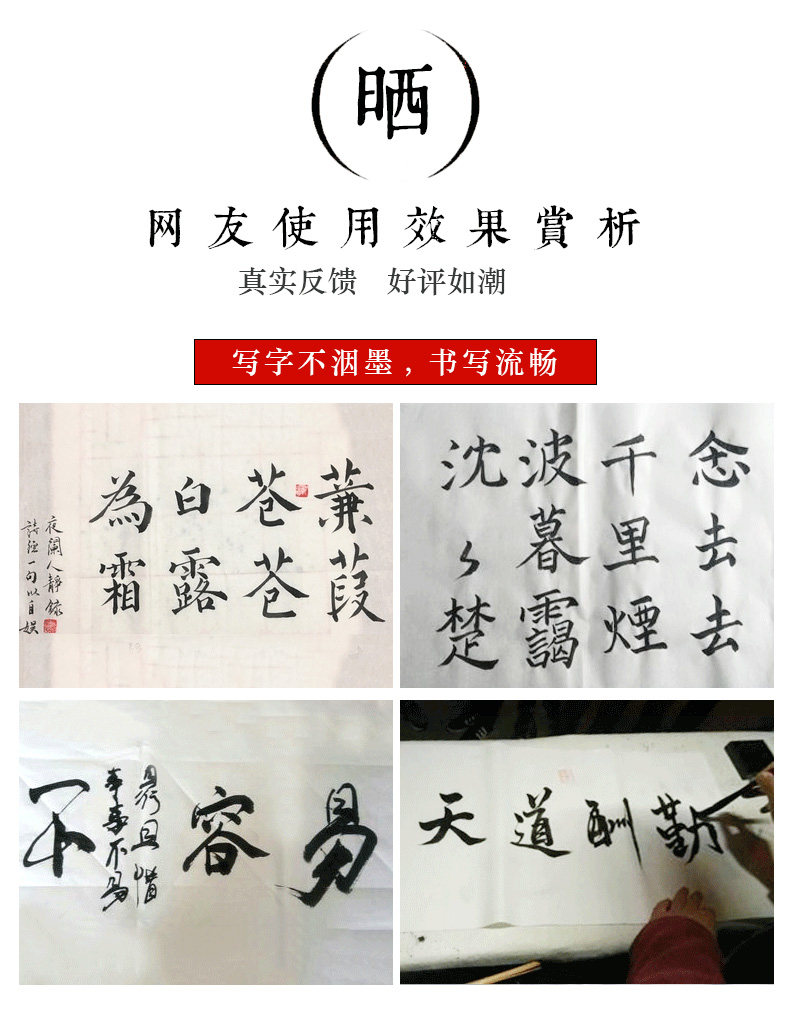 晒
网友使用效果赏析
真实反馈 好评如潮
写字不洇墨，书写流畅
蒹葭
苍苍
白露
為霜
夜阑人静録
詩经一句以自娱
念去去
千里煙
波暮靄
沈〻楚
易
容
不
事事不易
且惜
天道酬勤